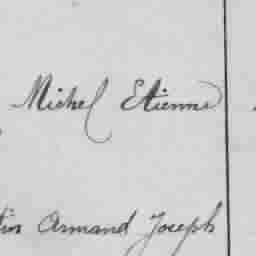 Michel Etienne
tin Armand Joseph